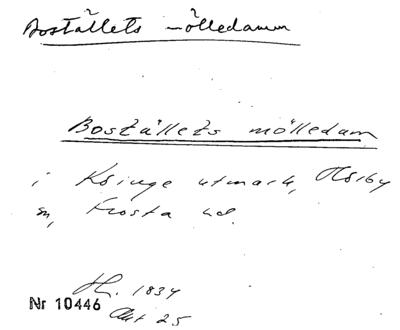 Boställets mölledamm
Boställets mölledam
i Ksinge utmark, Ö Åsby
sn, Frosta hd.
H. 1834
Akt 25
Nr 10446